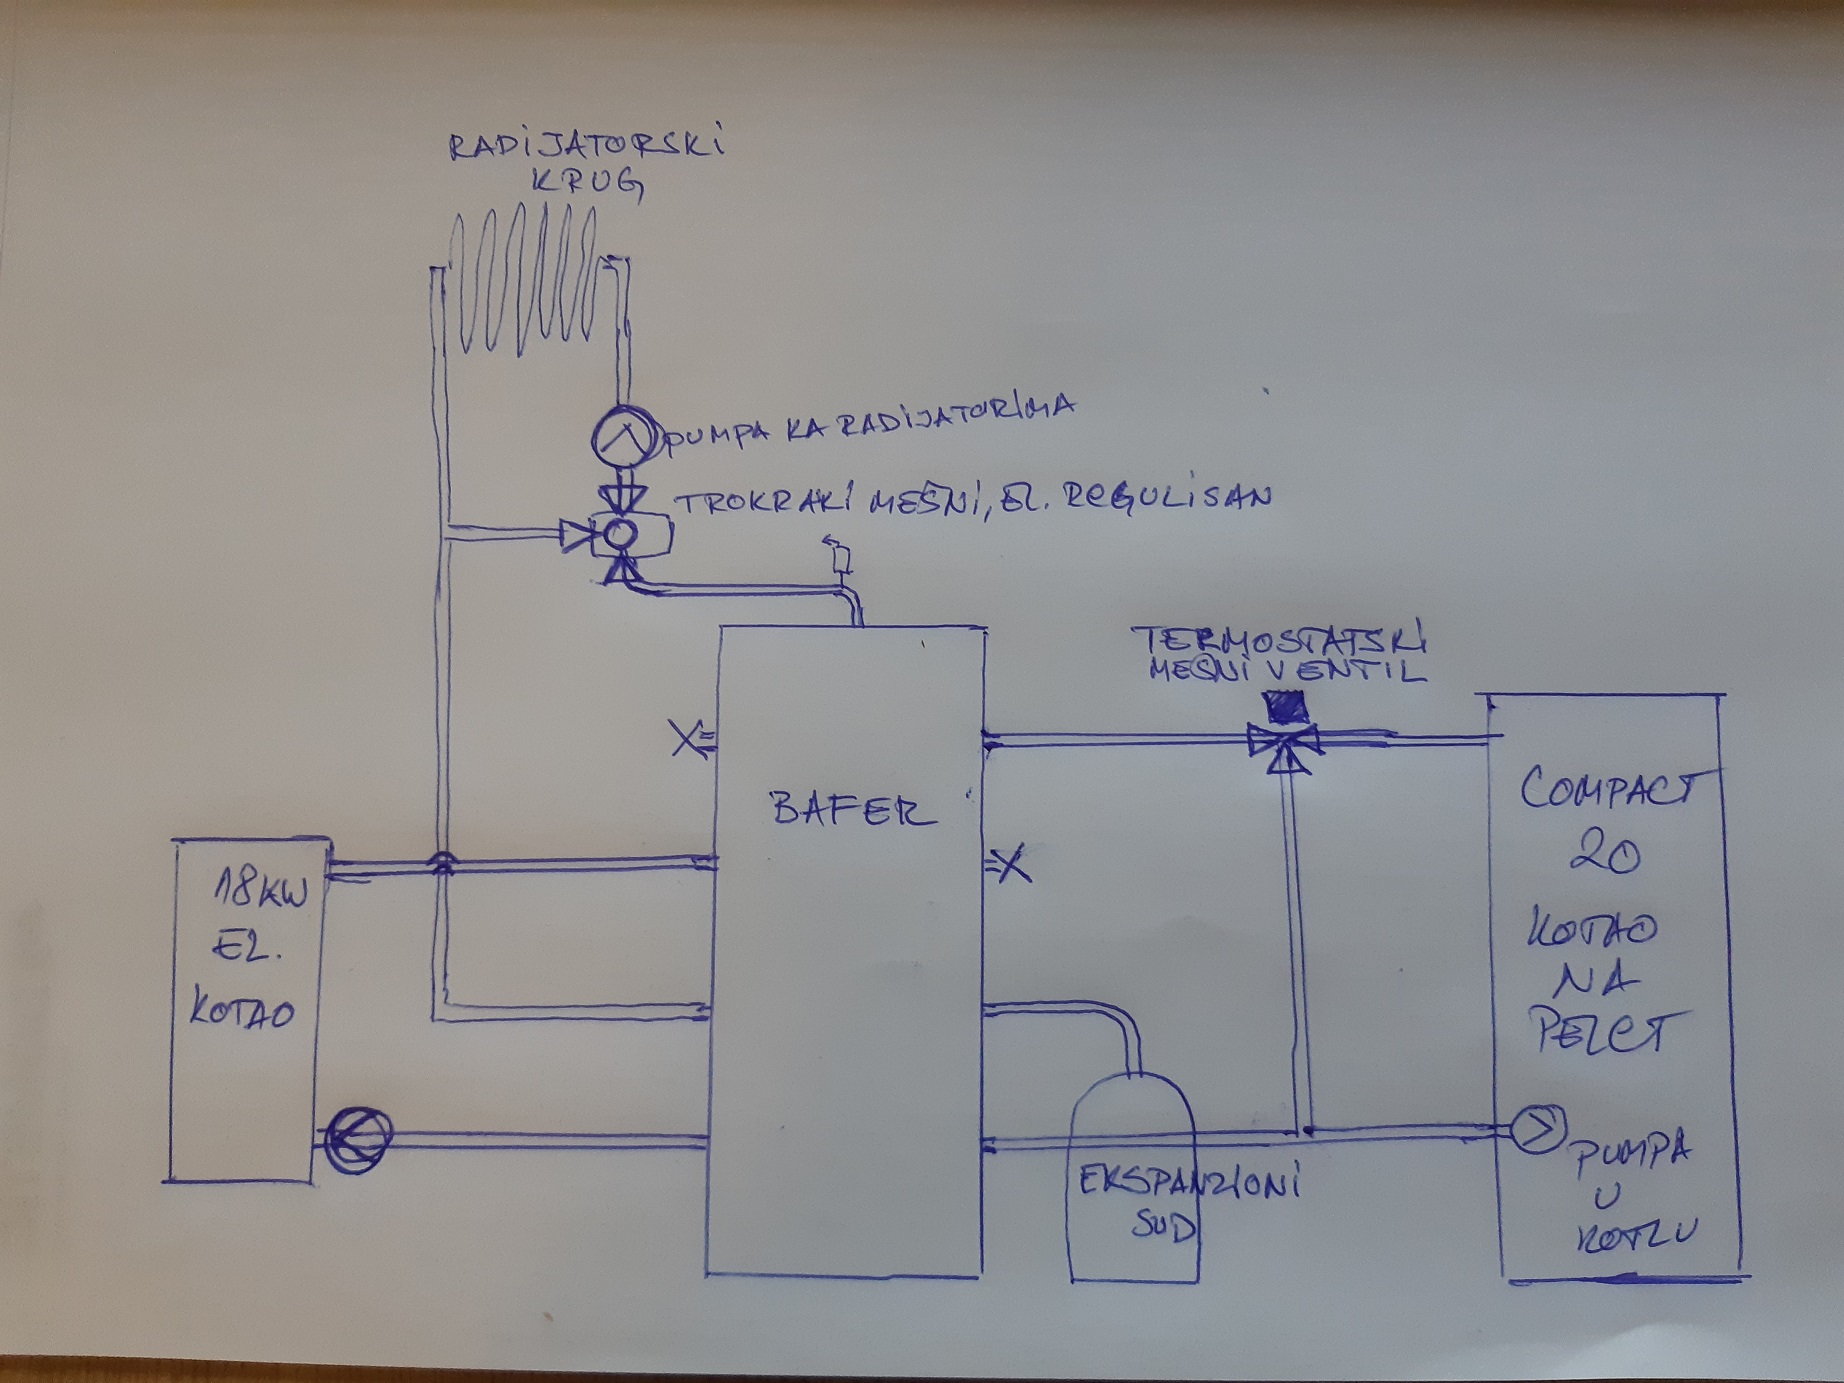 RADIJATORSKI
KRUG
PUMPA KA RADIJATORIMA
TROKRAKI MEŠNI, EL. REGULISAN
TERMOSTATSKI
MEŠNI VENTIL
BAFER
COMPACT
20
KOTAO
NA
PELET
PUMPA
U
KOTLU
18KW
EL.
KOTAO
EKSPANZIONI
SUD